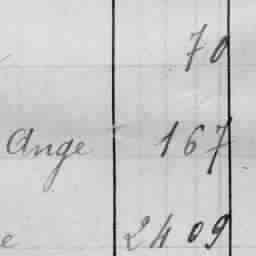 70
Ange 167
e 2409